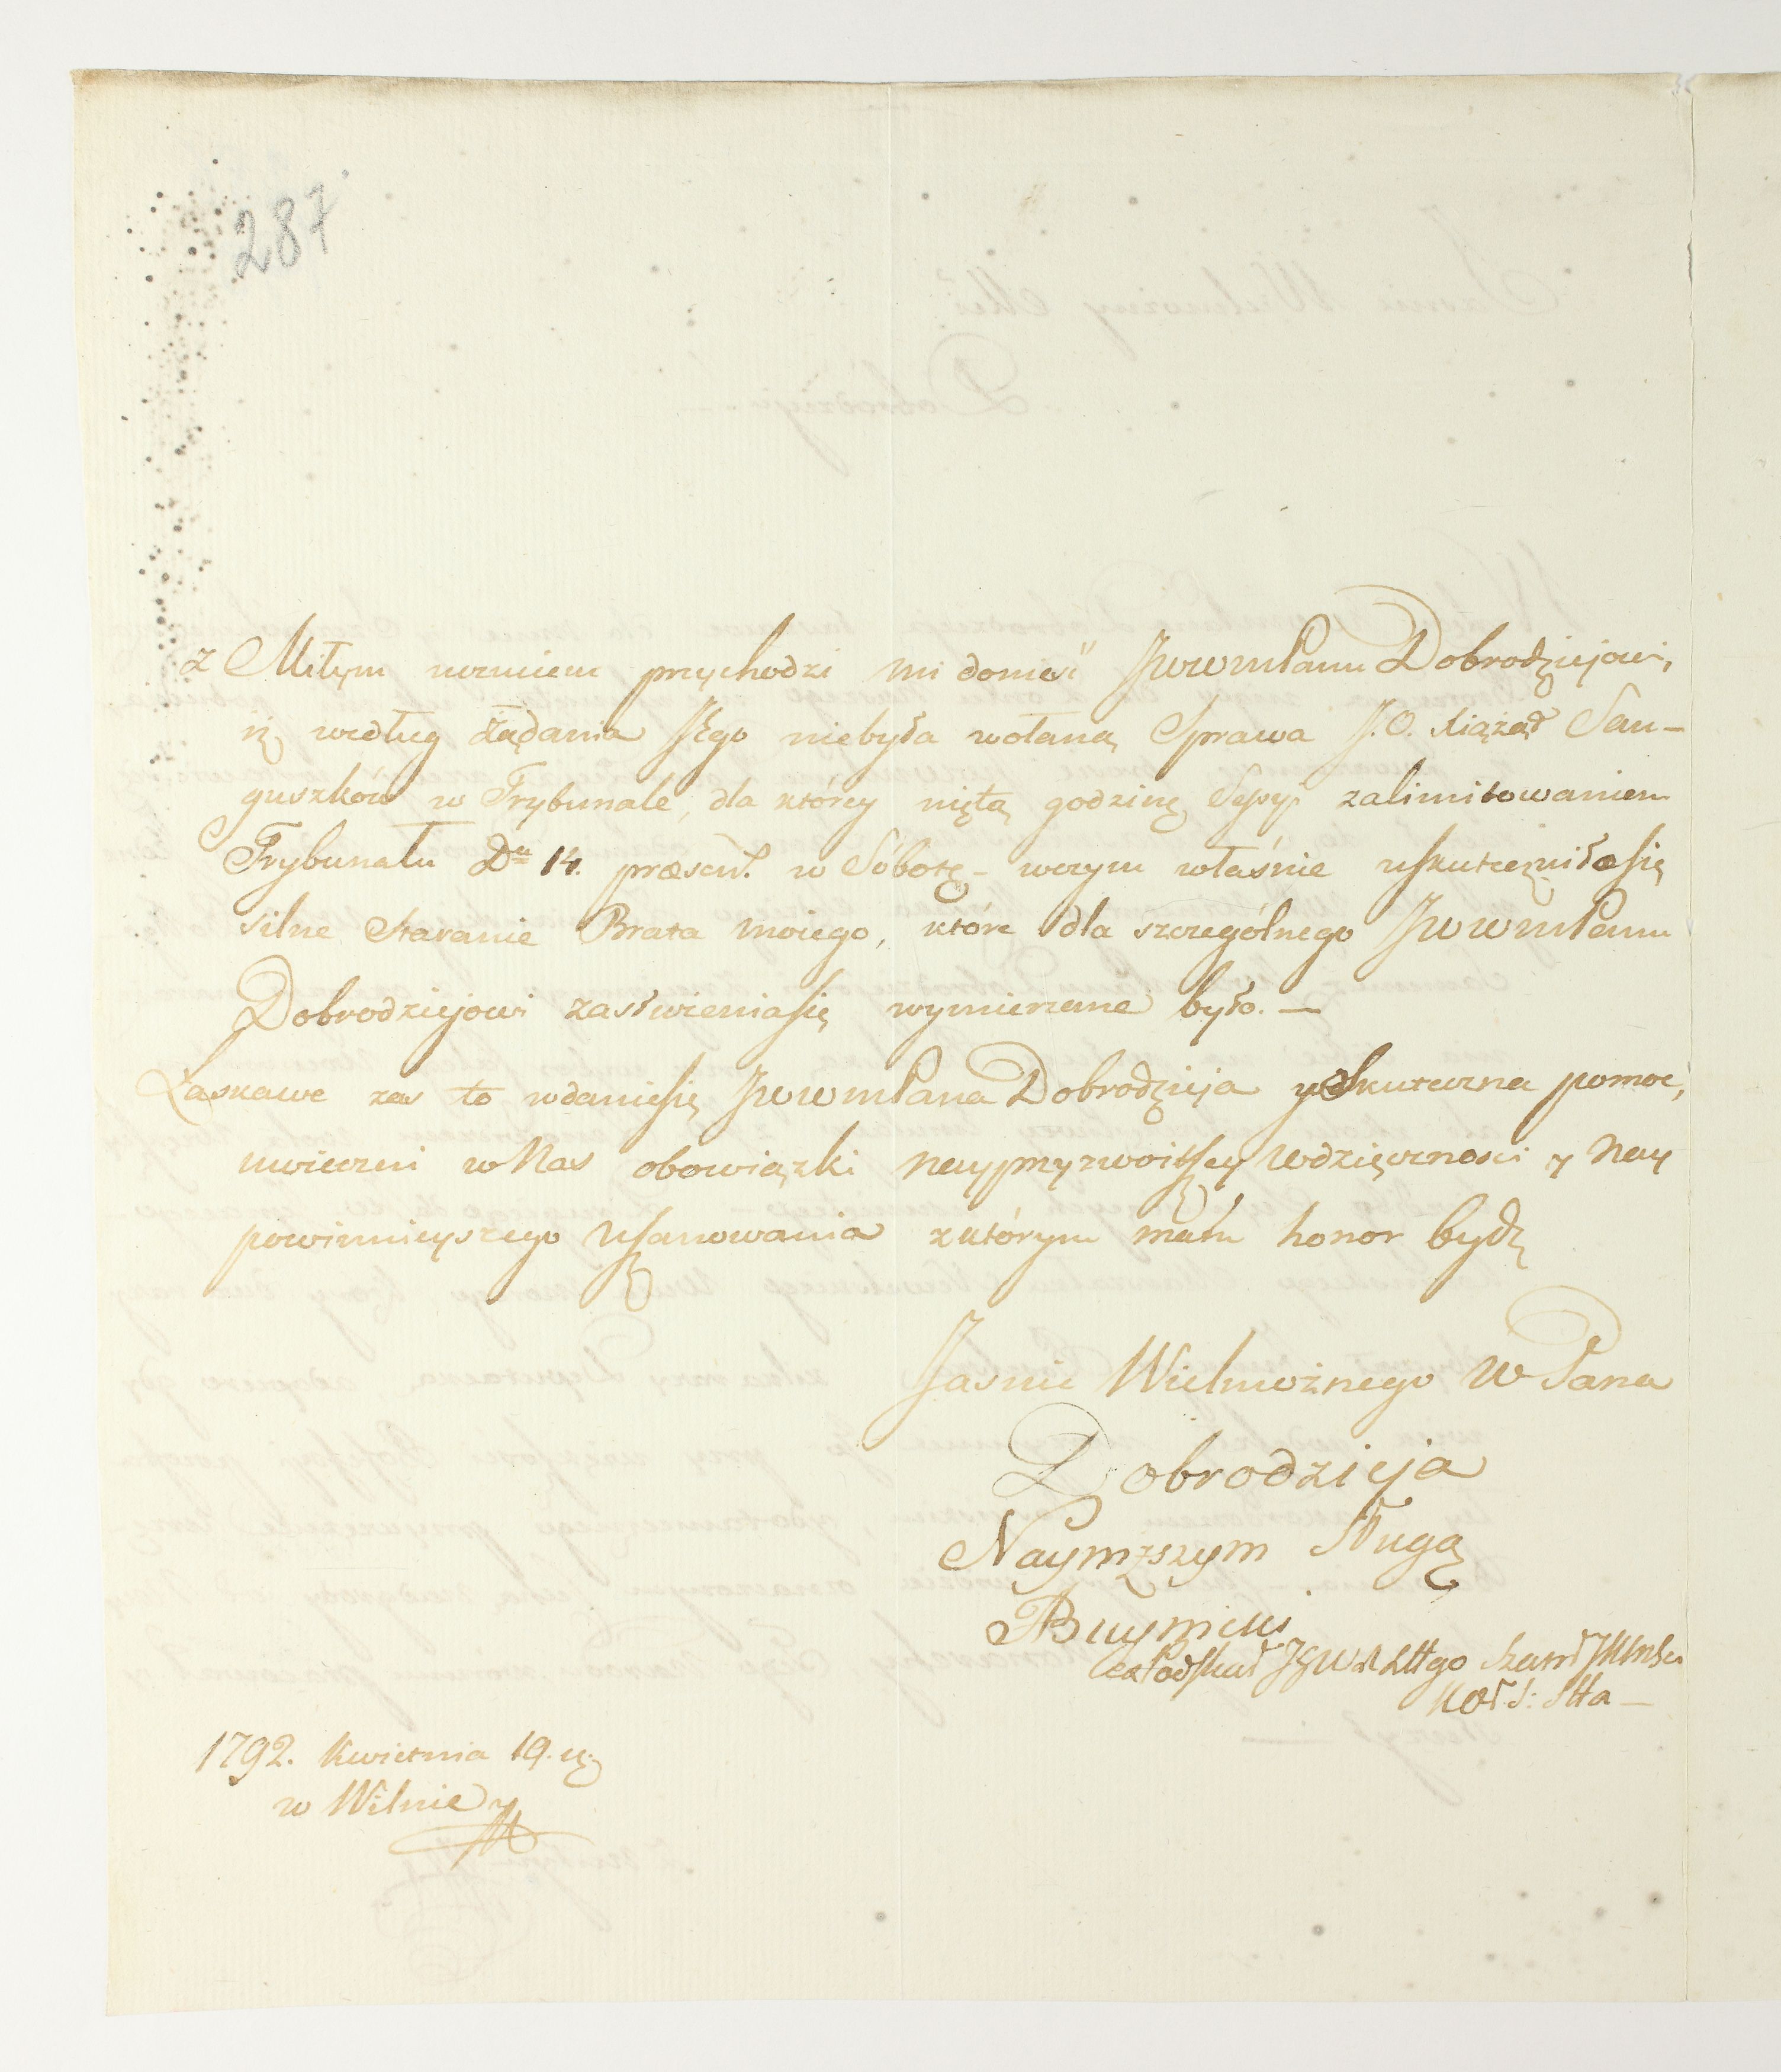 287
z Miłym uczuciem przychodzi mi donieść JWWmPanu Dobrodziejowi,
iż według żądania Jego niebyła wołaną Sprawa J.O. Xiążąt San-
guszków w Trybunale, dla którey godzinę Sessyi zalimitowaniem
Trybunału Dn 14. præsent. w Sobotę - wczym właśnie uskuteczniłosię
silne staranie Brata moiego, które dla szczególnego JWWmPanu
Dobrodziejowi wymierzone było. —
Łaskawe zas to wdaniesię JWWmPana Dobrodzieja y skuteczna pomoc,
uwieczni w Nas obowiązki nayprzyzwoitszey wdzięczności y Nay
powinnieyszego uszanowania zktórym mam honor bydź
Jasnie Wielmożnego WPana
Dobrodzieja
Naymższym Sługą
1792. Kwietnia 19.
w Wilnie